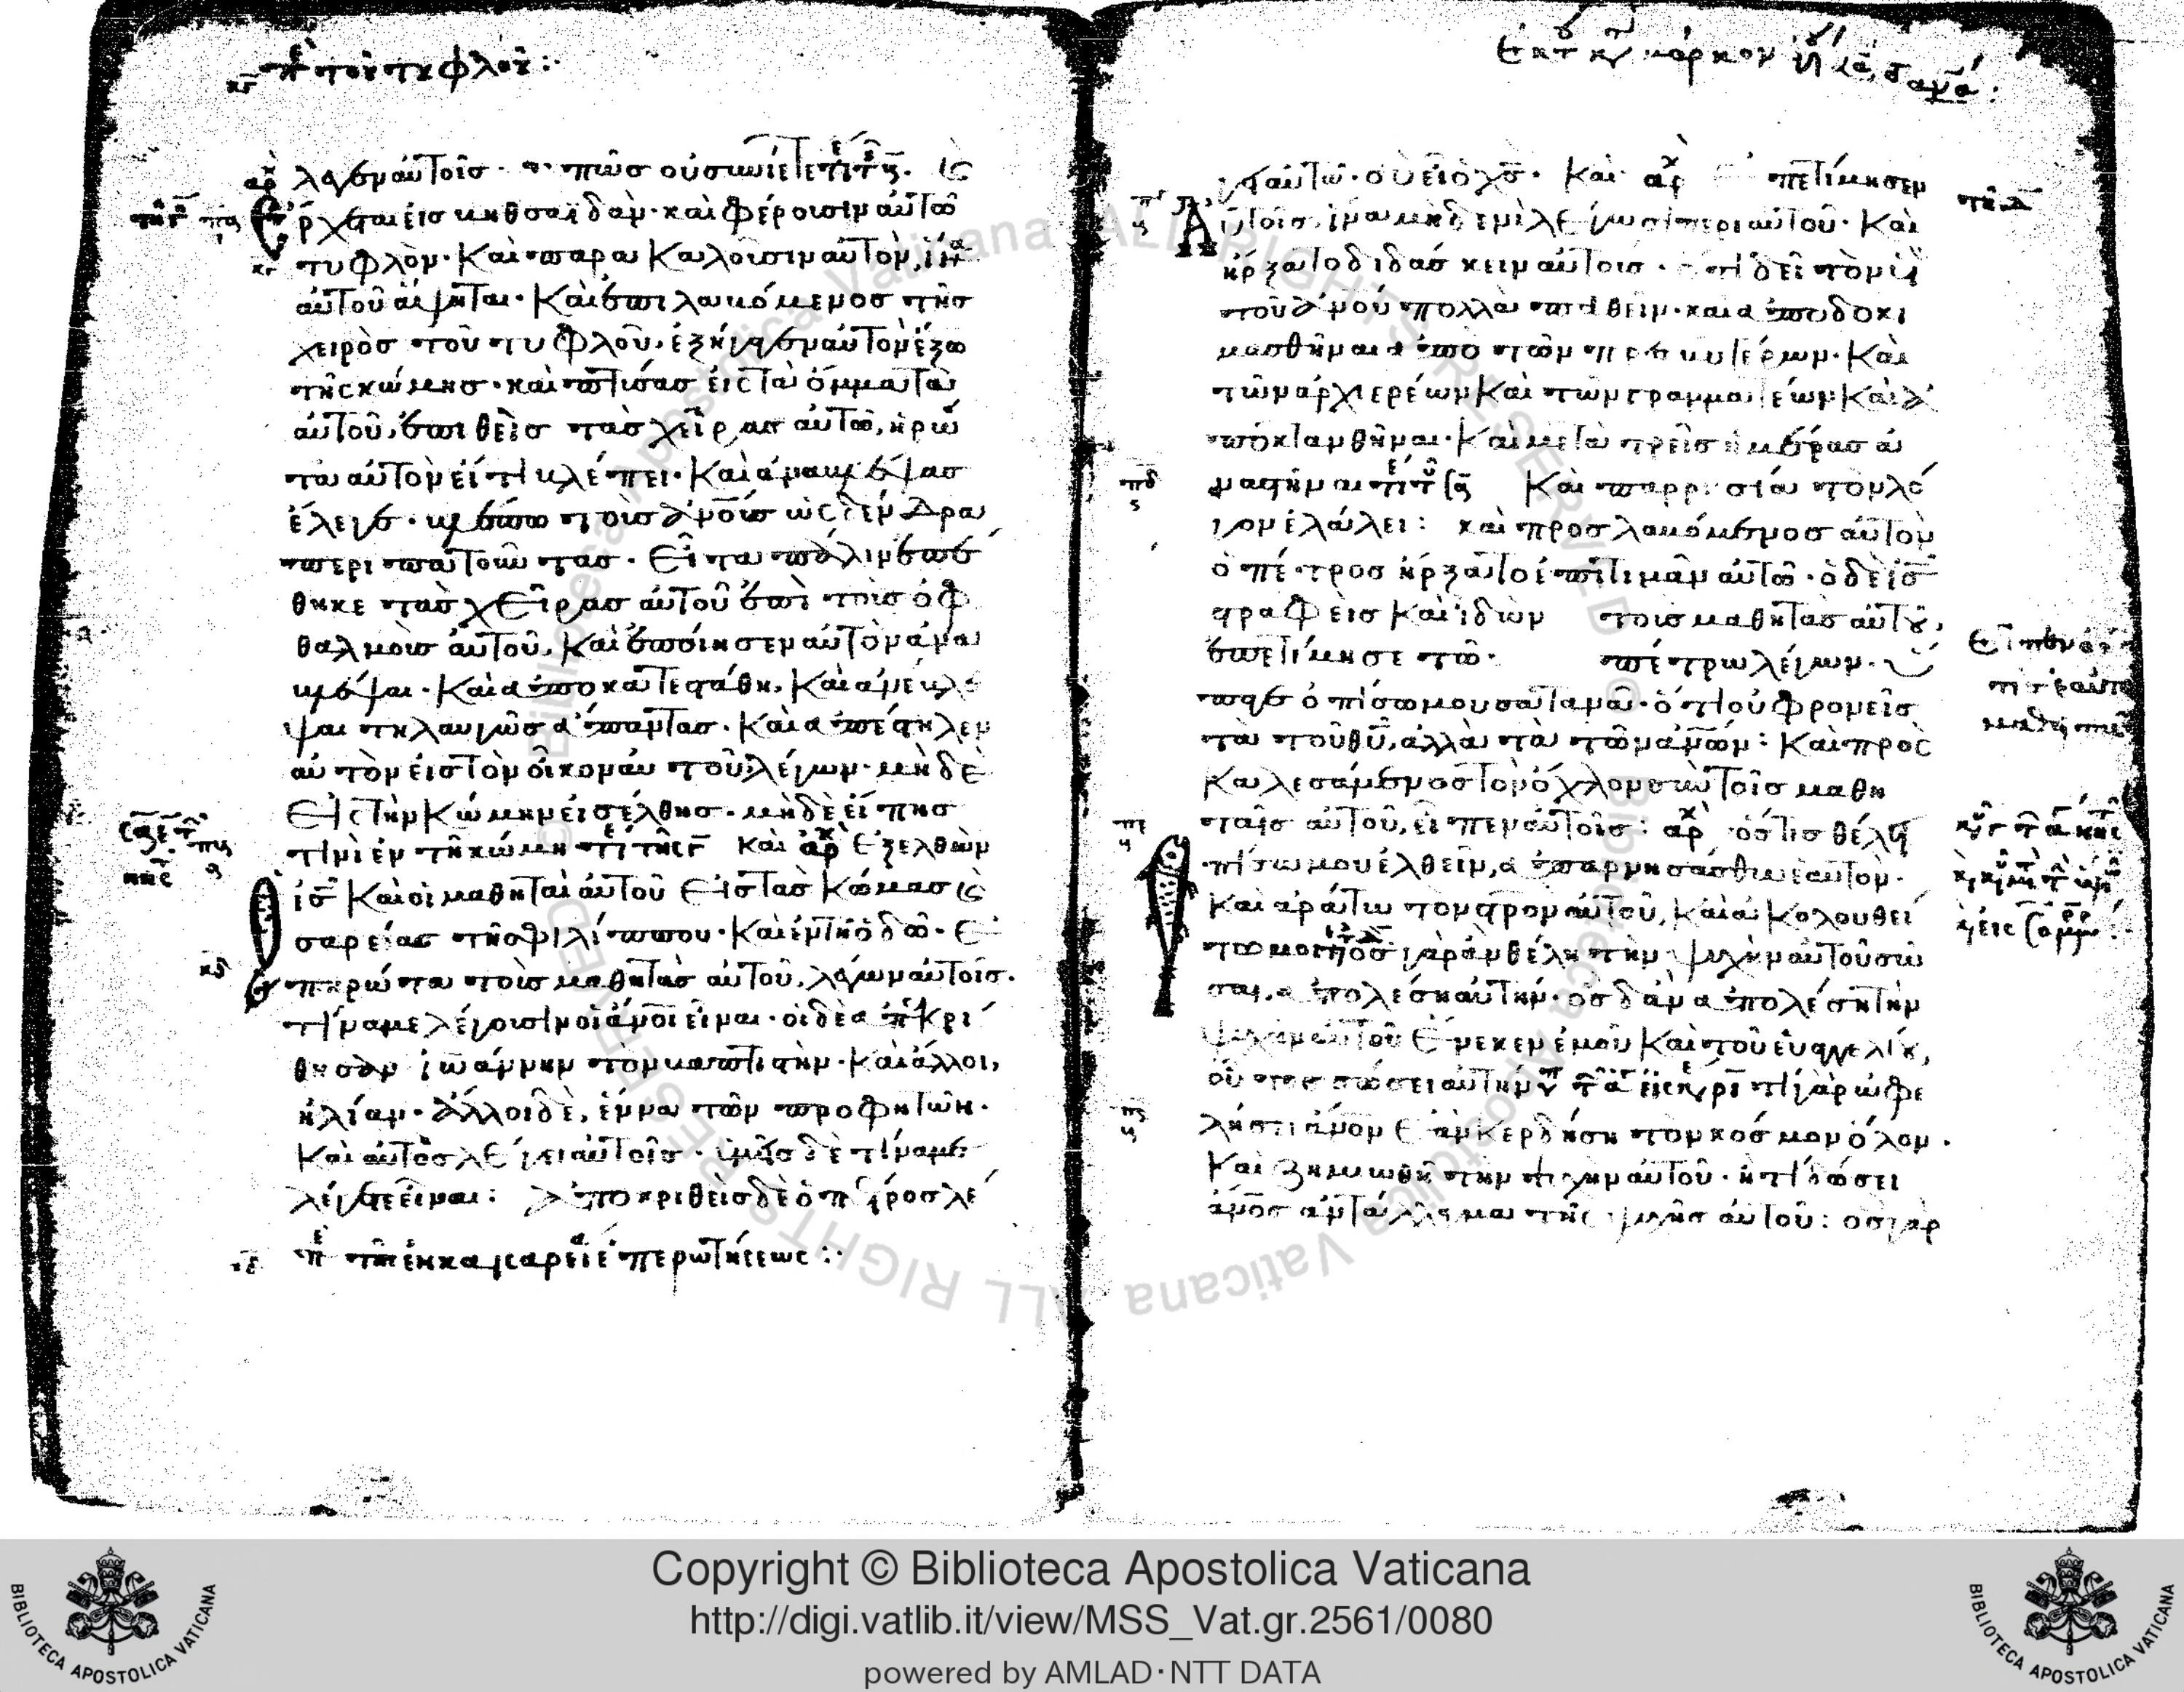 κγ πε του τυφλοῦ :·
λεγεν αὐτοῖσ · πῶσ οὐ συνίετε
ἔρχεται εἰσ βηθσαϊδὰν · καὶ φέρουσιν αὐτῶ
τυφλὸν · καὶ παρακαλοῦσιν αὐτὸν, ἵνα
αὐτοῦ ἅψηται · καὶ ἐπιλαβόμενοσ τῆσ
χειρὸσ τοῦ τυφλοῦ, ἐξήγαγεν αὐτὸν ἔξω
τῆς κώμησ · καὶ πτύσασ εἰς τὰ ὄμματα
αὐτοῦ, ἐπιθεὶσ τὰσ χεῖρασ αὐτῶ, ἠρώ
τα αὐτὸν εἴ τι βλέπει · καὶ ἀναβλέψασ
ἔλεγε · βλέπω τοὺσ ἀνουσ ὡς δένδρα
περιπατοῦντασ · εἶτα πάλιν ἐπέ
θηκε τὰσ χεῖρασ αὐτοῦ ἐπὶ τοὺσ ὀφ
θαλμοὺσ αὐτοῦ, καὶ ἐποίησεν αὐτὸν ἀνα
βλέψαι · καὶ ἀποκατεστάθη, καὶ ἀνέβλε
ψαι τηλαυγῶσ ἅπαντασ · καὶ ἀπέστηλεν
αὐτὸν εἰσ τὸν οἶκον αὐτοῦ λέγων · μὴδὲ
εἰς τὴν κώμην εἰσέλθησ · μὴδὲ εἴπησ
τινὶ ἐν τῆ κώμη καὶ ἐξελθὼν
ισ καὶ οἱ μαθηταὶ αὐτοῦ εἰσ τὰσ κώμασ
σαρείασ τῆσ φιλίππου · καὶ ἐν τῆ ὁδῶ · ἐ
πηρώτα τοὺσ μαθητὰσ αὐτοῦ, λέγων αὐτοῖσ ·
τίνα με λέγουσιν οἱ ἀνοι εἶναι · οἱ δὲ ἀπεκρί
θησαν ἰωάννην τὸν βαπτιστὴν · καὶ ἄλλοι,
ἠλίαν · ἄλλοι δὲ, ἕνα τῶν προφητῶν ·
καὶ αὐτὸσ λέγει αὐτοῖσ · ὑμεῖσ δὲ τίνα με
λέγετε εἶναι : ἀποκριθεὶσ δὲ ὁ πέτροσ λέ
πε τῆσ ἐν καισαρεία ἐπερωτήσεως :·
γει αὐτῶ · σὺ εἶ ὁ χσ · καὶ ἐπετίμησεν
αὐτοῖσ, ἵνα μηδενὶ λέγωσι περὶ αὐτοῦ · καὶ
ἤρξατο διδάσκειν αὐτοὺσ · ὅτι δεῖ τὸν υν
τοῦ ανου πολλὰ παθεῖν · καὶ ἀποδοκι
μασθῆναι ἀπὸ τῶν πρεσβυτέρων · καὶ
τῶν ἀρχιερέων καὶ τῶν γραμματέων καὶ ἀ
ποκτανθῆναι · καὶ μετὰ τρεῖσ ἡμέρασ ἀ
ναστῆναι καὶ παρρησία τὸν λό
γον ἐλάλει : καὶ προσλαβόμενοσ αὐτὸν
ὁ πέτροσ ἤρξατο ἐπιτιμᾶν αὐτῶ · ὁ δὲ ισ
στραφεὶσ καὶ ἰδὼν τοὺσ μαθητὰσ αὐτοῦ,
ἐπετίμησε τῶ · πέτρω λέγων · ὕ
παγε ὀπίσω μου σατανᾶ · ὅτι οὐ φρονεῖσ
τὰ τοῦ θυ, ἀλλὰ τὰ τῶν ανων : καὶ προς
καλεσάμενοσ τὸν ὄχλον σὺν τοῖσ μαθη
ταῖσ αὐτοῦ, εἶπεν αὐτοῖσ : ὅστισ θέλει
ὀπίσω μου ἐλθεῖν, ἀπαρνησάσθω ἑαυτὸν ·
καὶ ἀράτω τὸν στρον αὐτοῦ, καὶ ἀκολουθεί
τω μοι ὃσ γὰρ ἂν θέλη τὴν ψυχὴν αὐτοῦ σῶ
σαι, ἀπολέση αὐτήν · ὃσ δ' ἂν ἀπολέση τὴν
ψυχὴν αὐτοῦ ἕνεκεν ἐμοῦ καὶ τοῦ εὐαγγελίου,
οὗτοσ σώσει αὐτήν τί γὰρ ὠφε
λήσει ανον ἐὰν κερδήση τὸν κόσμον ὅλον ·
καὶ ζημιωθῆ τὴν ψυχὴν αὐτοῦ · ἢ τί δώσει
ανοσ ἀντάλλαγμα τῆσ ψυχῆσ αὐτοῦ : ὃσ γὰρ
Biblioteca Apostolica Vaticana ALL RIGHTS RESERVED ©
Copyright © Biblioteca Apostolica Vaticana
http://digi.vatlib.it/view/MSS_Vat.gr.2561/0080
powered by AMLAD·NTT DATA
BIBLIOTECA APOSTOLICA VATICANA
BIBLIOTECA APOSTOLICA VATICANA